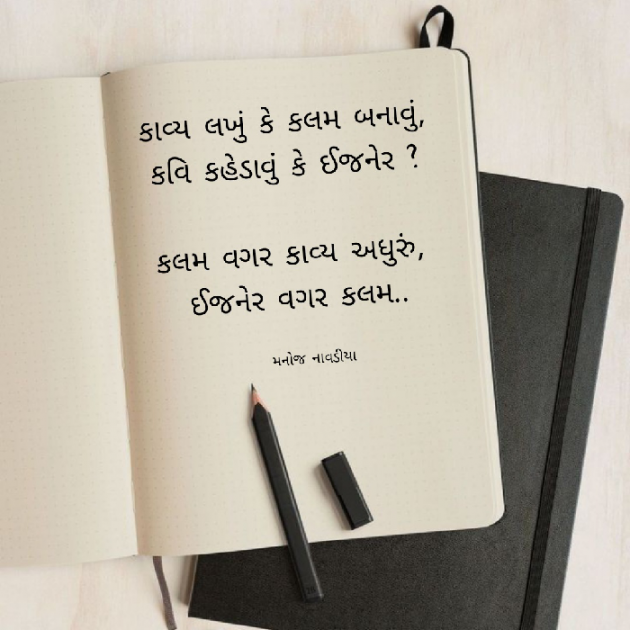 કાવ્ય લખું કે કલમ બનાવું,
કવિ કહેડાવું કે ઈજનેર ?
કલમ વગર કાવ્ય અધુરું,
ઈજનેર વગર કલમ..
મનોજ નાવડીયા